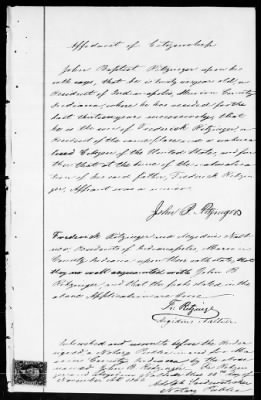 Affidavit of Citizenship
John Baptist Ritzinger upon his
oath says, that he is years old, a
Resident of Indianapolis, Marion County
Indiana, where he has resided for the
last thirteen years uninterruptedly, that
he is the son of Frederick Ritzinger, a
Resident of the same place, and a natura-
lized Citizen of the United States, and fur-
ther that at the time of the naturalization
of his said father, Frederick Ritzin-
ger, Affiant was a minor.
John B. Ritzinger
Frederick Ritzinger and
Residents of Indianapolis, Marion
County Indiana upon their oath state, that
they are well acquainted with John B
Ritzinger, and that the facts stated in the
above Application are true.
Fr. Ritzinger
Subscribed and sworn to before the Under-
signed a Notary Public in and for Ma-
rion County Indiana by the above
named John B. Ritzinger, Fr. Ritzin-
ger and
November
Adolph
Notary Public